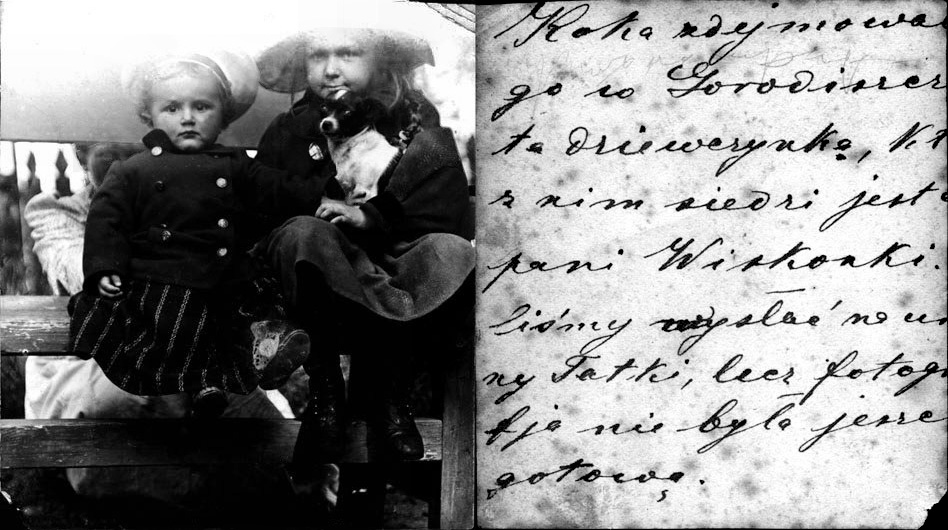 Koka zdejmowa
go w Gorodiszcz
ta dziewczynka, kt
z nim siedzi jest
pani Wiskonki.
liśmy wysłać na u
ny Tatki, lecz fotogr
fja nie była jeszc
gotową.